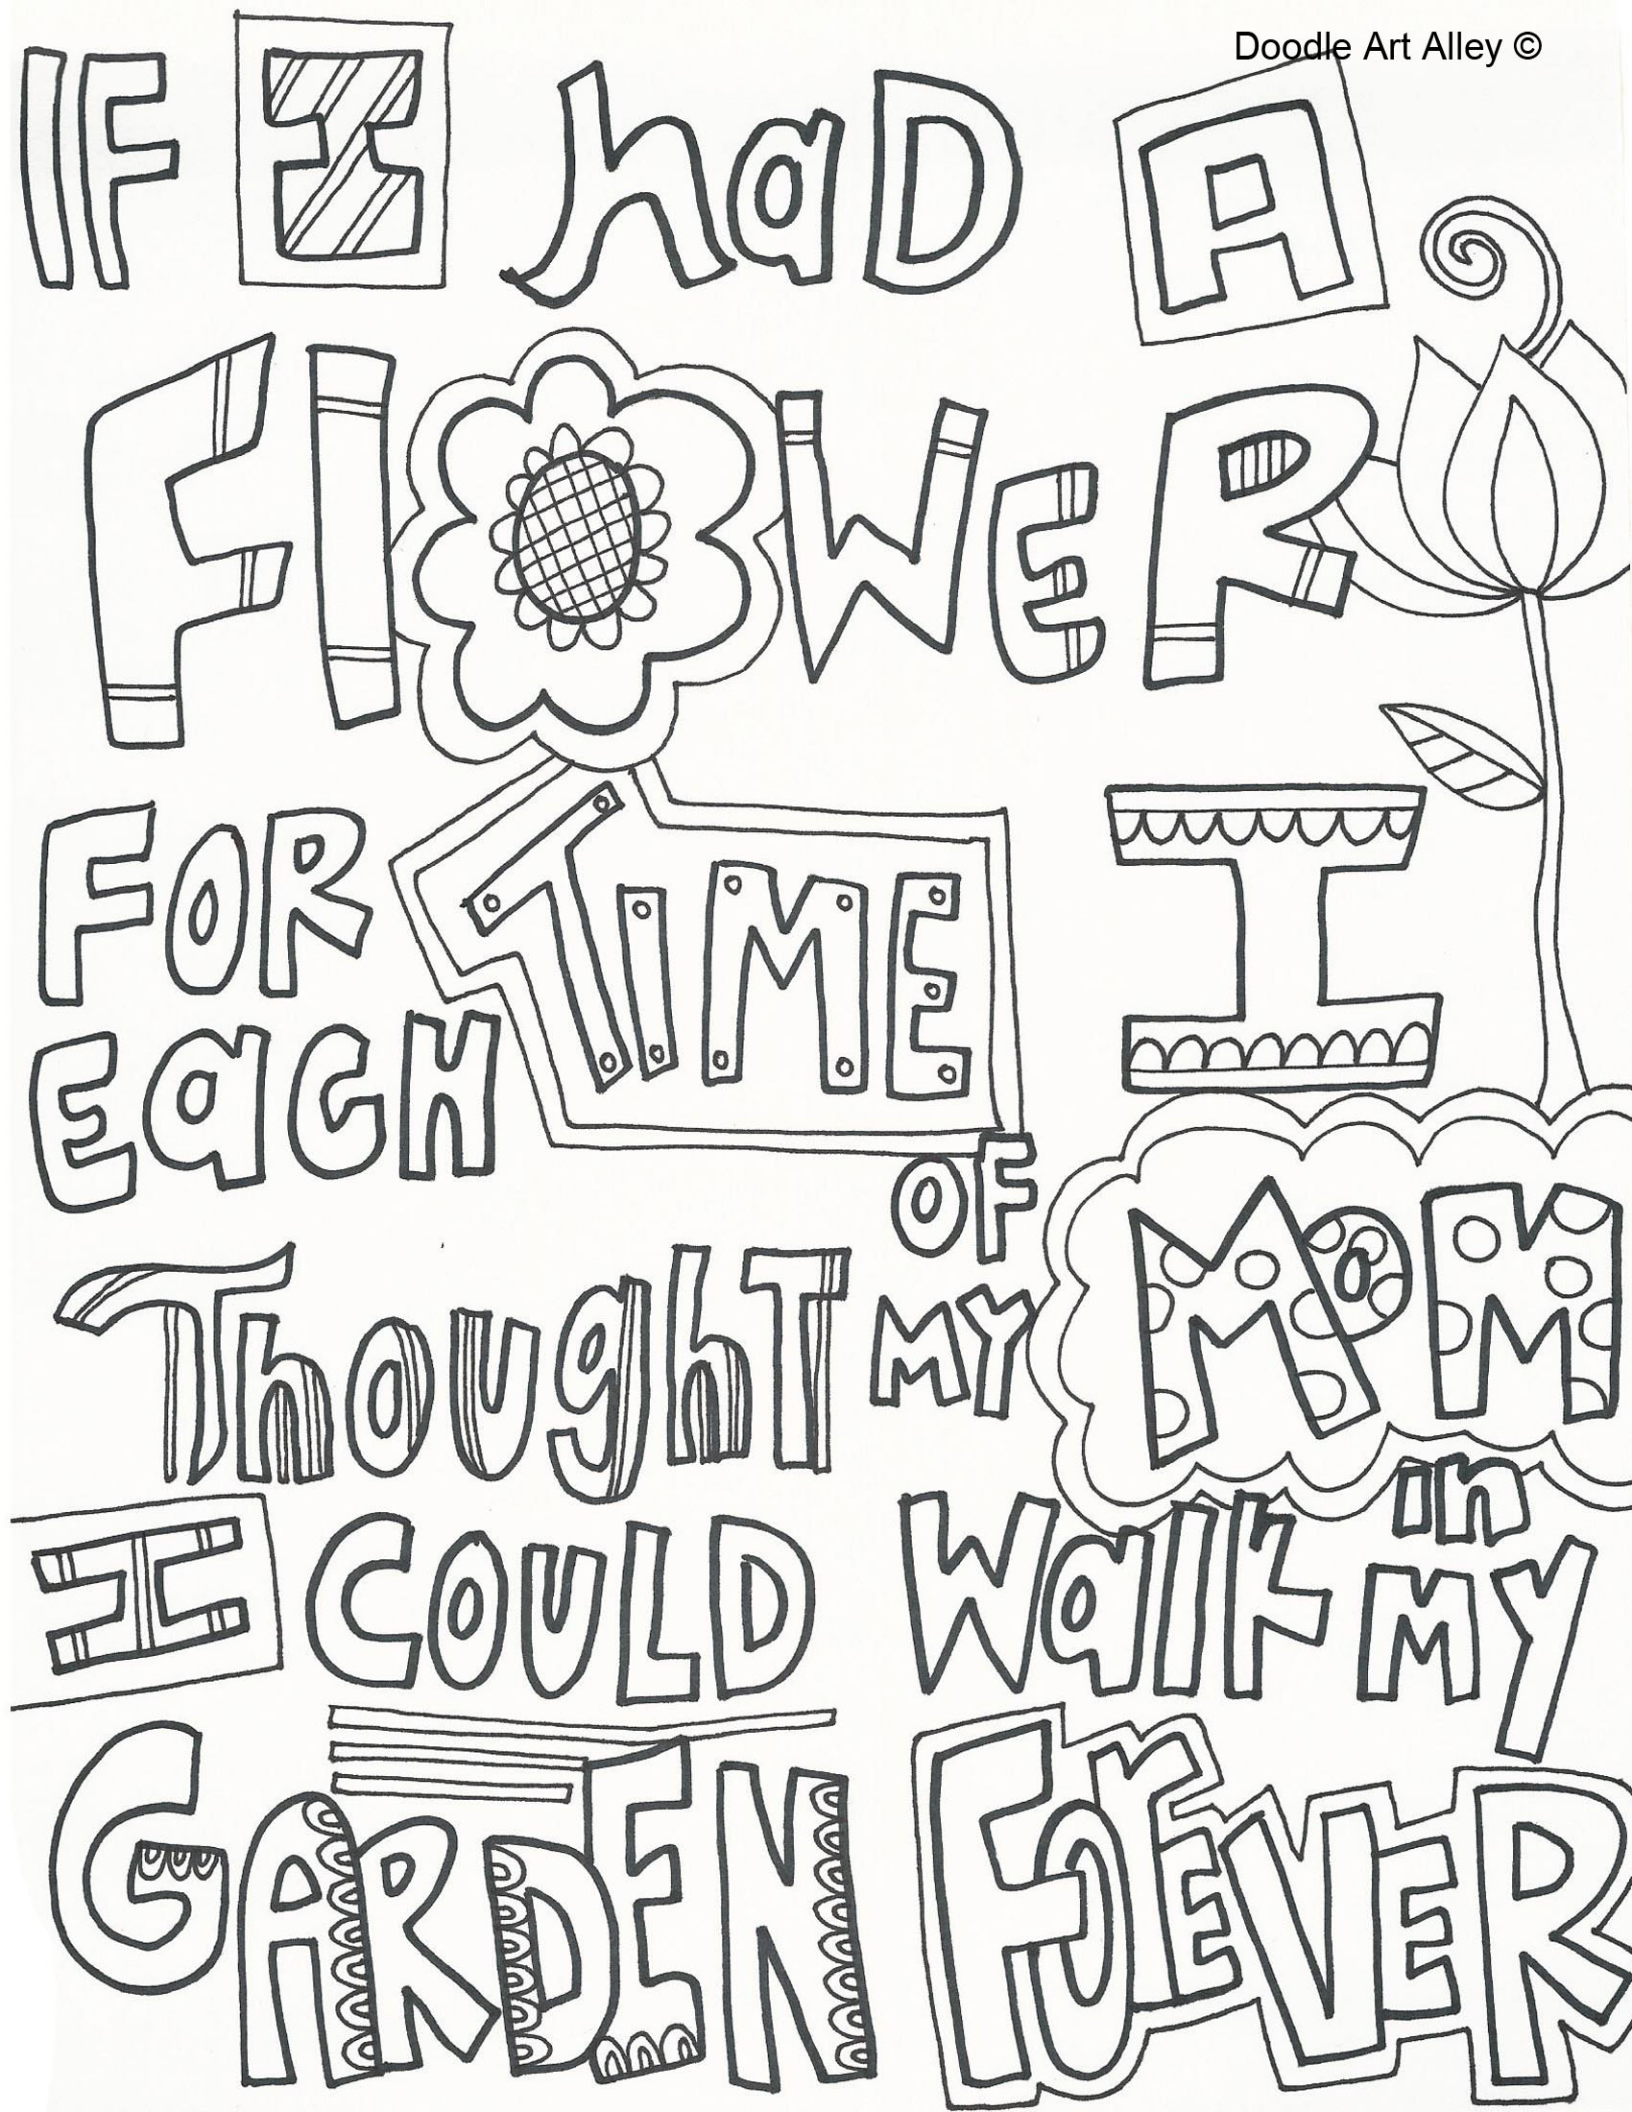 Doodle Art Alley ©
IF I haD A
FlOWER
FOR TIME I
EacH
OF
ThoughT MY MOM
I COULD Walk in MY
GARDEN FOrEVER